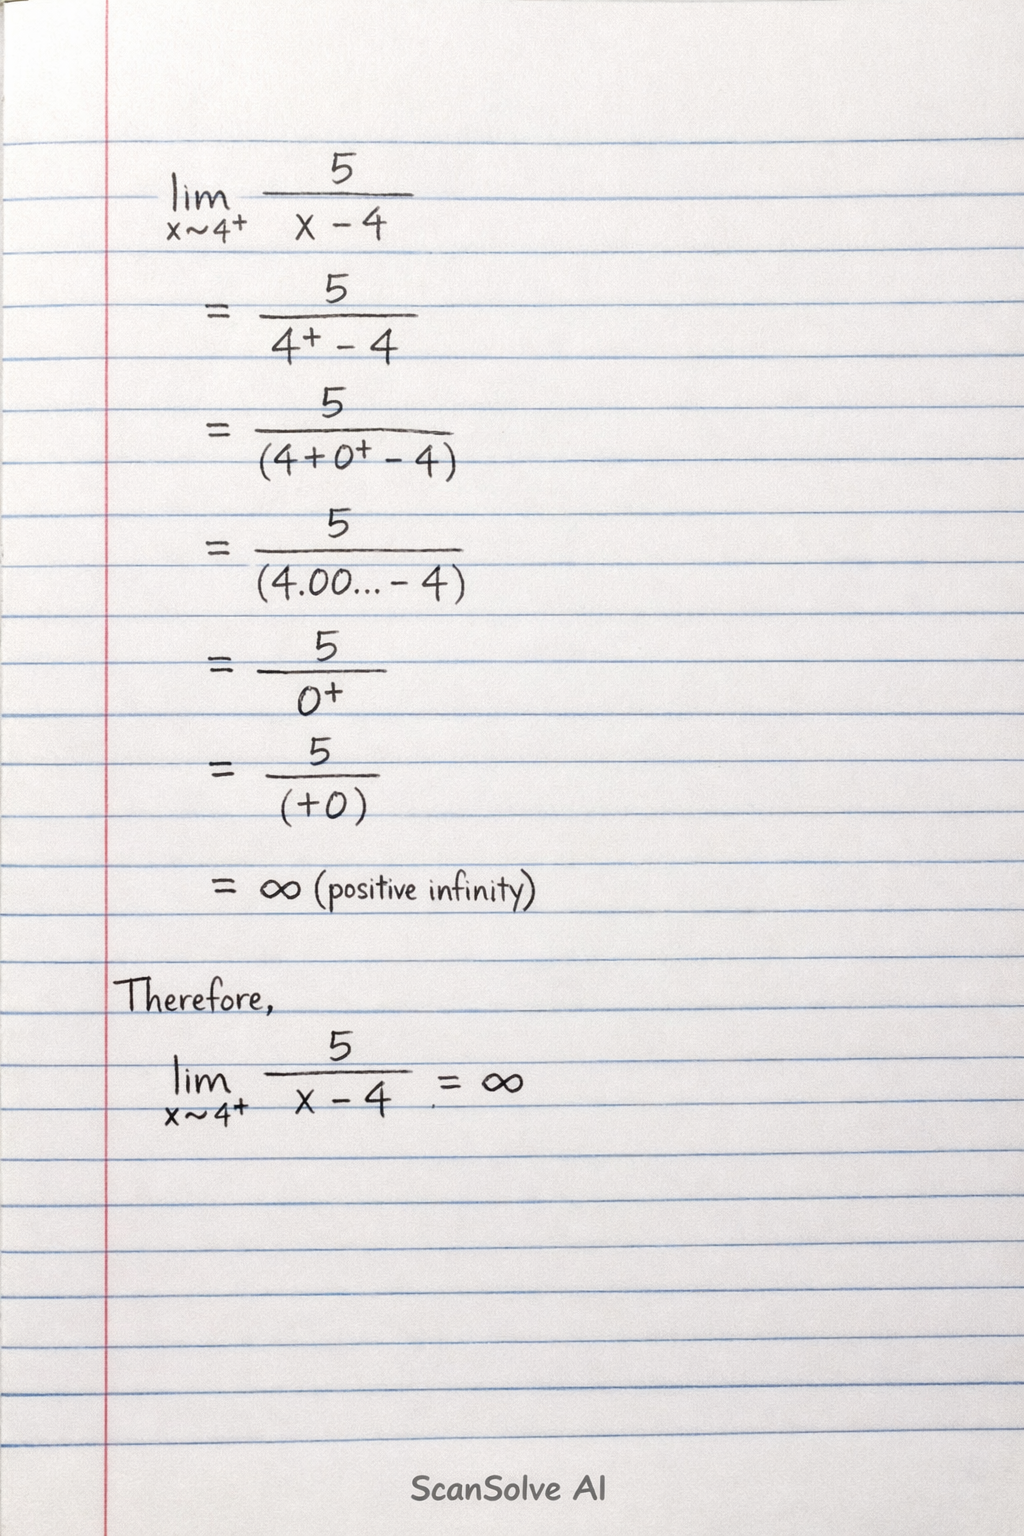 lim 5 / (x - 4)
x~4⁺
= 5 / (4⁺ - 4)
= 5 / (4+0⁺ - 4)
= 5 / (4.00... - 4)
= 5 / 0⁺
= 5 / (+0)
= ∞ (positive infinity)
Therefore,
lim 5 / (x - 4) = ∞
x~4⁺
ScanSolve AI